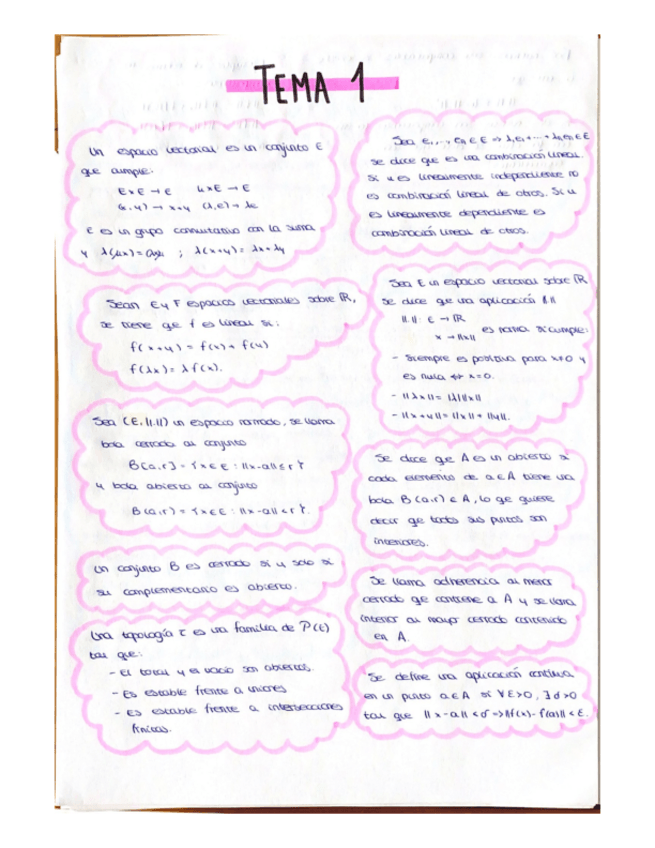 TEMA 1
Un espacio vectorial es un conjunto E
que cumple:
E×E → E    𝕂×E → E
(x,y) → x+y    (λ,e) → λe
E es un grupo conmutativo con la suma
y λ(μx) = ; λ(x+y) = λx+λy
Sean E y F espacios vectoriales sobre ℝ,
se tiene que f es lineal si:
f(x+y) = f(x)+f(y)
f(λx) = λf(x).
Sea (E,||.||) un espacio normado, se llama
bola cerrada al conjunto
B[a,r] = {x∈E : ||x-a|| ≤ r}
y bola abierta al conjunto
B(a,r) = {x∈E : ||x-a|| < r}.
Un conjunto B es cerrado si y solo si
su complementario es abierto.
Una topología τ es una familia de P(E)
tal que:
- El total y el vacio son abiertos.
- Es estable frente a uniones
- Es estable frente a intersecciones
finitas.
Sea e₁,..., eₙ ∈ E ⇒ λ₁e₁+...+λₙeₙ ∈ E
se dice que es una combinación lineal.
Si u es linealmente independiente no
es combinación lineal de otros. Si u
es linealmente dependiente es
combinación lineal de otros.
Sea E un espacio vectorial sobre ℝ
se dice que una aplicación ||.||
||.||: E → ℝ
x → ||x|| es norma si cumple:
- Siempre es positiva para x≠0 y
es nula ⇔ x=0.
- ||λx|| = |λ|||x||
- ||x+y|| = ||x|| + ||y||.
Se dice que A es un abierto si
cada elemento de a∈A tiene una
bola B(a,r) ∈ A, lo que quiere
decir que todos sus puntos son
interiores.
Se llama adherencia al menor
cerrado que contiene a A y se llama
interior al mayor cerrado contenido
en A.
Se define una aplicación continua
en un punto a∈A si ∀ε>0, ∃δ>0
tal que ||x-a|| < δ ⇒ ||f(x)-f(a)|| < ε.